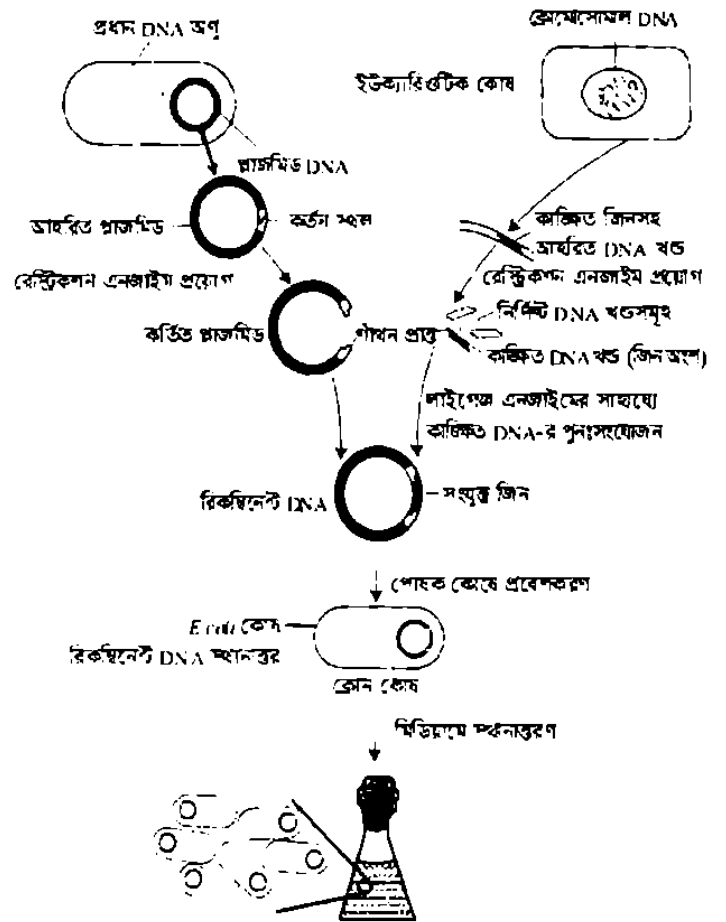 প্রধান DNA অণু
ক্রোমোসোমাল DNA
ইউক্যারিওটিক কোষ
প্লাজমিড DNA
আহরিত প্লাজমিড
কর্তন স্থল
কাঙ্ক্ষিত জিনসহ
আহরিত DNA খন্ড
রেস্ট্রিকশন এনজাইম প্রয়োগ
রেস্ট্রিকশন এনজাইম প্রয়োগ
নির্দিষ্ট DNA খন্ডসমূহ
কর্তিত প্লাজমিড
গাঁথন প্রান্ত
কাঙ্ক্ষিত DNA খন্ড (জিন অংশ)
লাইগেজ এনজাইমের সাহায্যে
কাঙ্ক্ষিত DNA-র পুনঃসংযোজন
রিকম্বিনেন্ট DNA
সংযুক্ত জিন
পোষক কোষে প্রবেশকরণ
E coli কোষ
রিকম্বিনেন্ট DNA স্থানান্তর
ক্লোন কোষ
মিডিয়ামে স্থানান্তরণ